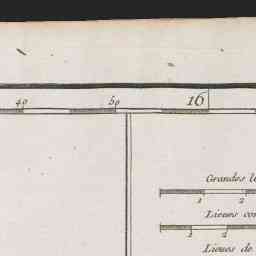 40 50 16
Grandes
1 2
Lieues
1 2
Lieues de